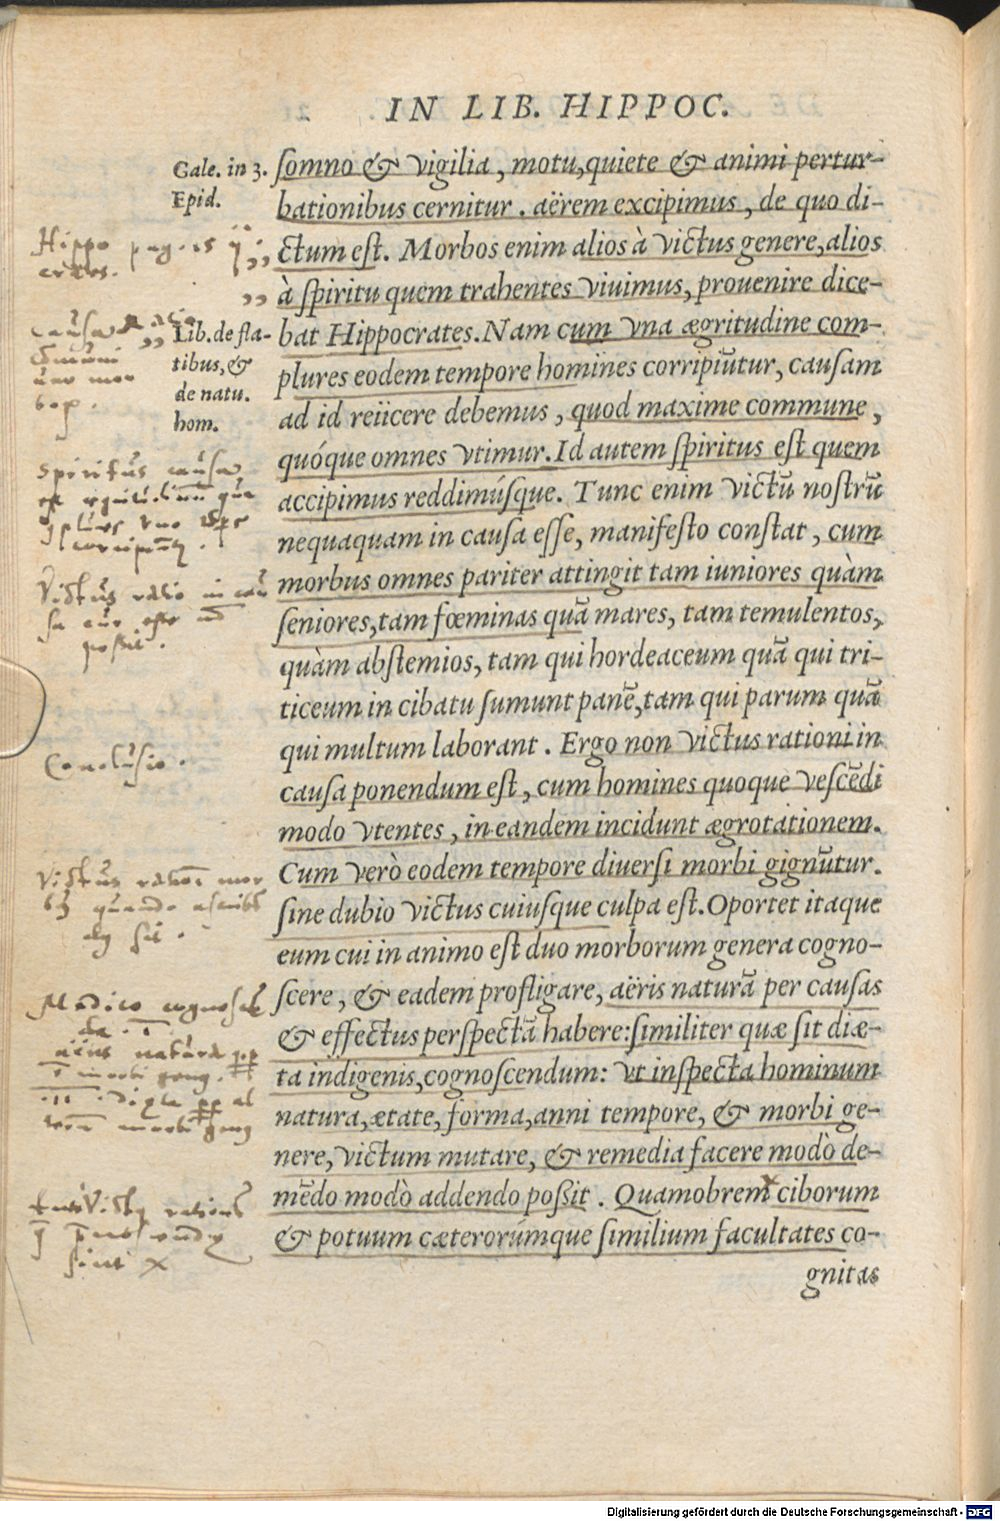 IN LIB. HIPPOC.
Gale. in 3.
Epid.
ſomno & vigilia, motu, quiete & animi pertur-
bationibus cernitur. aërem excipimus, de quo di-
ctum eſt. Morbos enim alios à victus genere, alios
à ſpiritu quem trahentes viuimus, prouenire dice-
bat Hippocrates. Nam cum vna ægritudine com-
plures eodem tempore homines corripiūtur, cauſam
ad id reiicere debemus, quod maxime commune,
quóque omnes vtimur. Id autem ſpiritus eſt quem
accipimus reddimúſque. Tunc enim victū noſtrū
nequaquam in cauſa eſſe, manifeſto conſtat, cum
morbus omnes pariter attingit tam iuniores quàm
ſeniores, tam fœminas quā mares, tam temulentos,
quàm abſtemios, tam qui hordeaceum quā qui tri-
ticeum in cibatu ſumunt panē, tam qui parum quā
qui multum laborant. Ergo non victus rationi in
cauſa ponendum eſt, cum homines quoque veſcēdi
modo vtentes, in eandem incidunt ægrotationem.
Cum verò eodem tempore diuerſi morbi gignūtur.
ſine dubio victus cuiuſque culpa eſt. Oportet itaque
eum cui in animo eſt duo morborum genera cogno-
ſcere, & eadem profligare, aëris naturā per cauſas
& effectus perſpectā habere: ſimiliter quæ ſit diæ-
ta indigenis, cognoſcendum: vt inſpecta hominum
natura, ætate, forma, anni tempore, & morbi ge-
nere, victum mutare, & remedia facere modò de-
mēdo modò addendo poſſit. Quamobrem ciborum
& potuum cæterorúmque ſimilium facultates co-
gnitas
Lib. de fla-
tibus, &
de natu.
hom.
Hippo
crates.
ſpiritus cauſa
Victus ratio in cau
ſa
poſſit.
Concluſio.
Victus
ſit.
Medico
natura
morbi
ſint
Digitalisierung gefördert durch die Deutsche Forschungsgemeinschaft - DFG